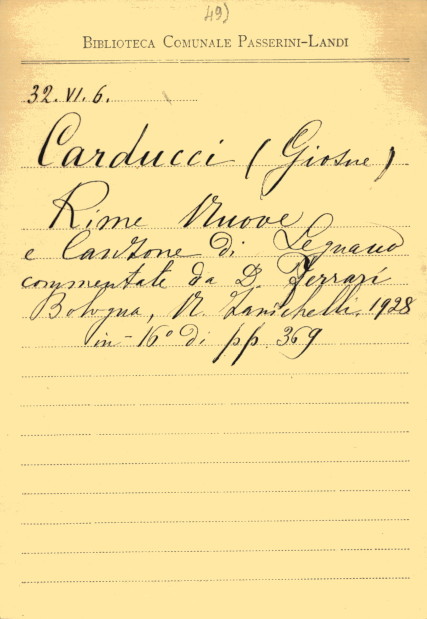 49)
BIBLIOTECA COMUNALE PASSERINI-LANDI
32. VI. 6.
Carducci (Giosue)
Rime Nuove
e Canzone di Legnano
commentate da D. Ferrari
Bologna, N. Zanichelli. 1928
in-16° di pp. 369